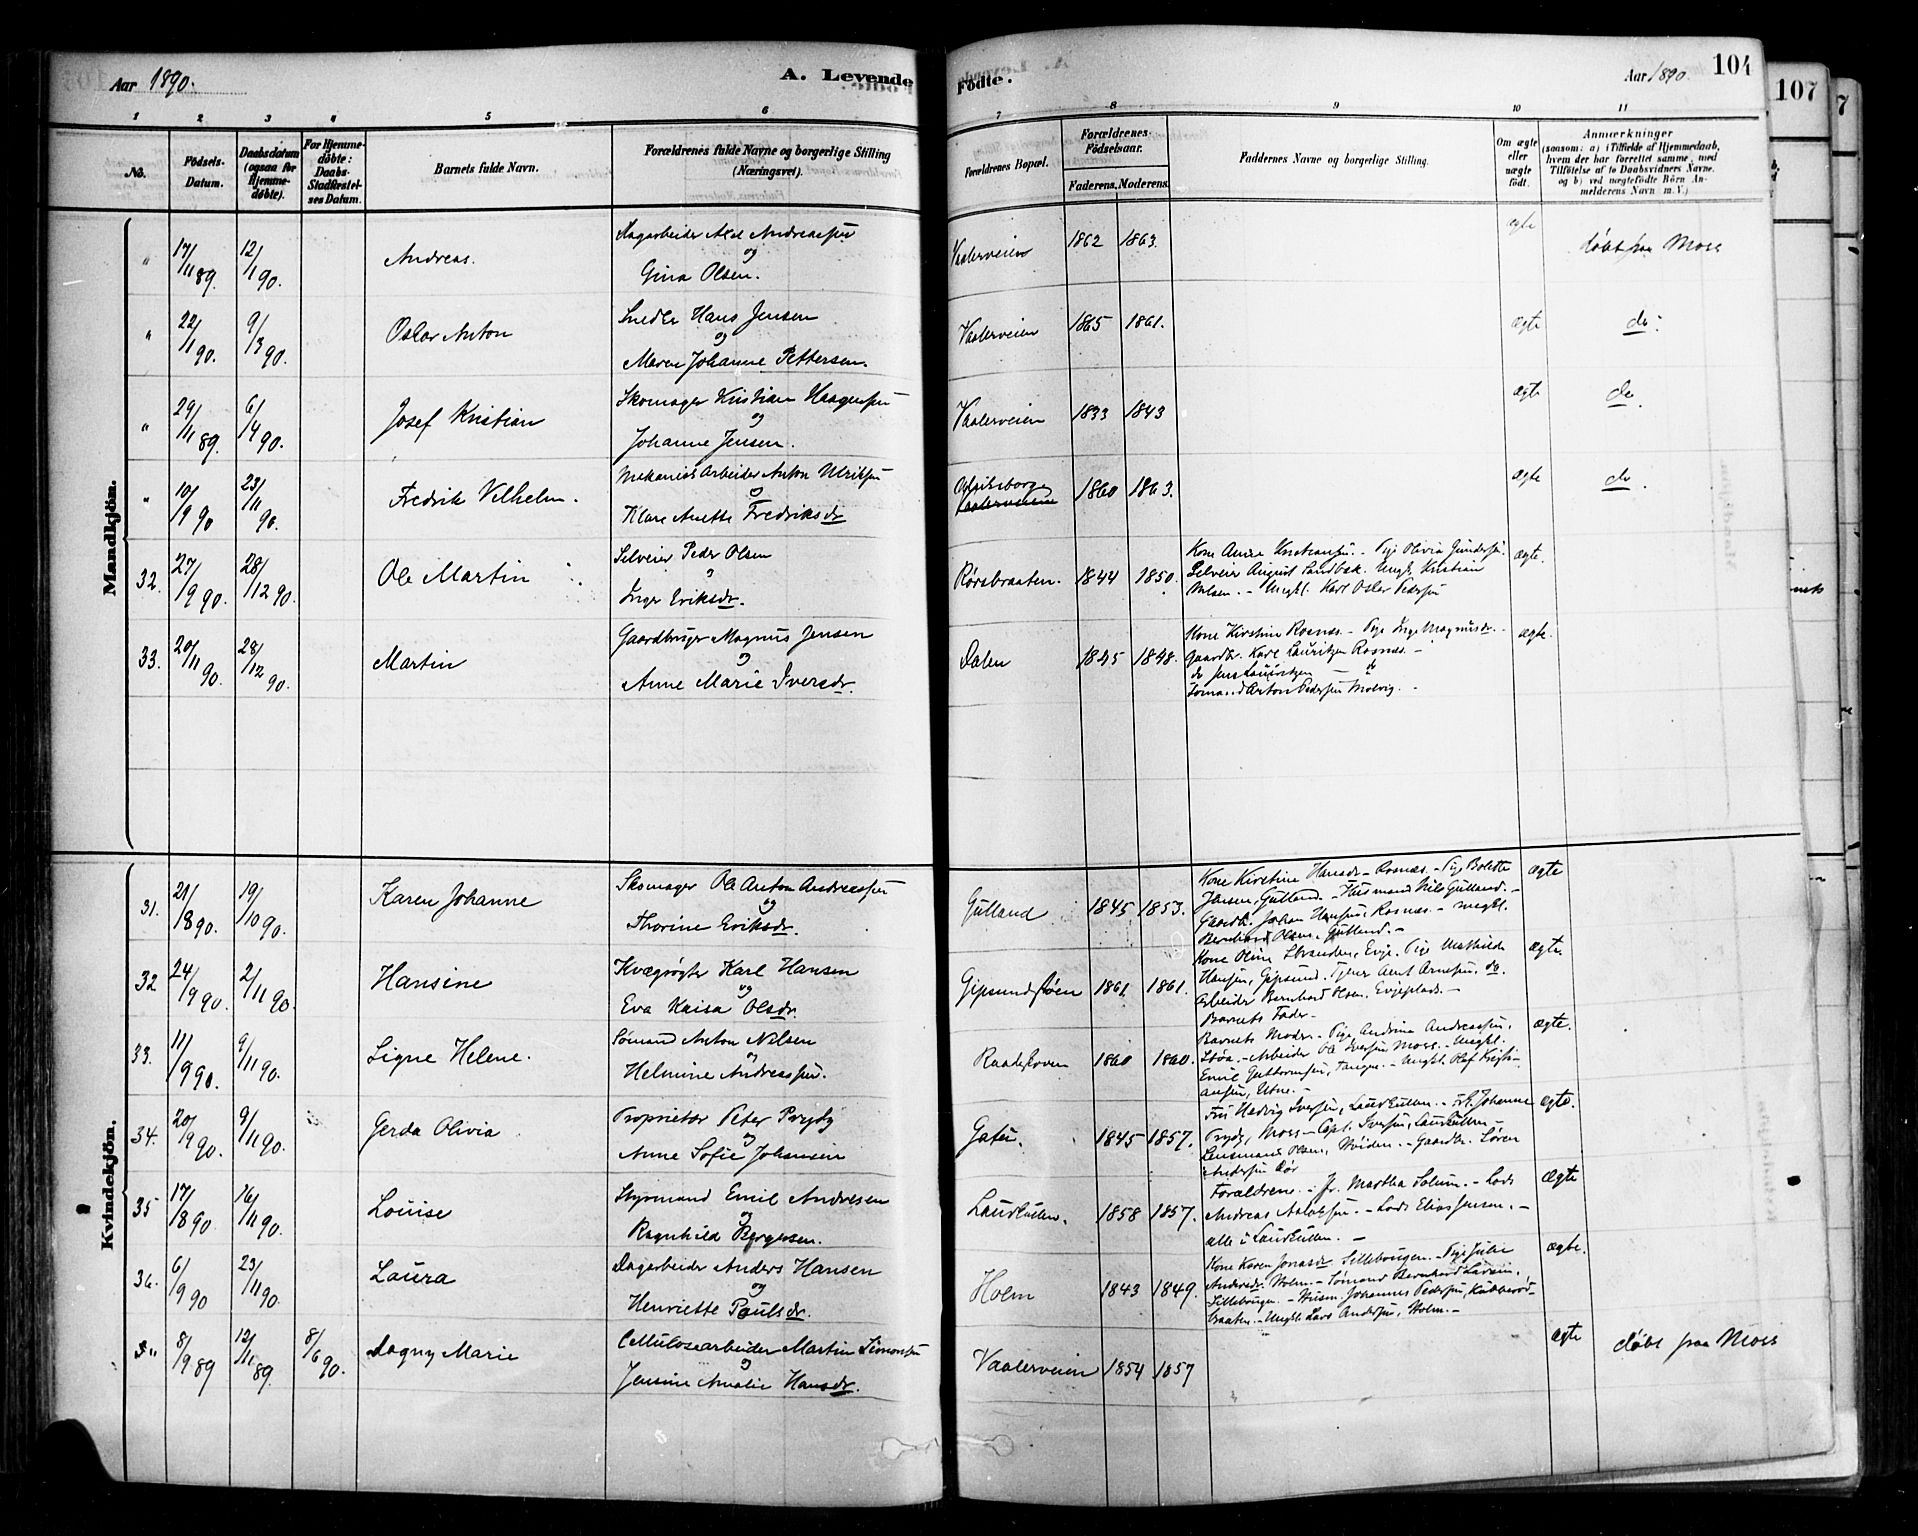 Aar 1890.
A. Levende
Fødte.
Aar 1890.
104
107
7
1 2 3 4 5 6 7 8 9 10 11
No.
Fødsels-
Datum.
Daabsdatum
(ogsaa for
Hjemme-
døbte).
For Hjemme-
døbte:
Daabs-
Stadfæstel-
ses Datum.
Barnets fulde Navn.
Forældrenes fulde Navne og borgerlige Stilling
(Næringsvei).
Forældrenes Bopæl.
Forældrenes
Fødselsaar.
Faderens. Moderens.
Faddernes Navne og borgerlige Stilling.
Om ægte
eller
uægte
født.
Anmærkninger
(saasom: a) i Tilfælde af Hjemmedaab,
hvem der har forrettet samme, med
Tilføielse af to Daabsvidners Navne,
og b) ved uægtefødte Børn An-
melderens Navn m. V.)
Mandkjøn.
" 17/11 89. 12/1 90. Andreas.
Dagarbeider Axel Andreassen
og
Gina Olsen.
Vaalerveien 1862 1863. ægte døbt paa Moss
" 22/1 90. 9/3 90. Oskar Anton
Smed Hans Jensen
og
Maren Johanne Pettersen.
Vaalerveien 1865 1861. ægte do.
" 29/11 89. 6/4 90. Josef Kristian
Skomager Kristian Haagensen
og
Johanne Jensen.
Vaalerveien 1833 1843 ægte do
" 10/9 90 23/11 90. Fredrik Vilhelm.
Mekanisk Arbeider Anton Ulriksen
og
Klara Anette Fredriksdr
Vaalerveien 1860 1863. ægte do.
32. 27/9 90. 28/12 90. Ole Martin
Selveier Peder Olsen
og
Inger Eriksdr.
Rørsbraaten. 1844 1850.
Kone Anne Kristiansen. - Pige Olivia Gundersen.
Selveier August Sandbæk. Ungk. Kristian
Nilsen. - Ungkl. Karl Oskar Pedersen
ægte.
33. 20/11 90. 28/12 90. Martin
Gaardbruger Magnus Jensen
og
Anne Marie Iversdr.
Dalen 1845 1848.
Kone Kirstine Rosnæs. - Pige Inge Magnusdr. -
Gaardbr. Karl Lauritzen Rosnæs. -
do Jens Lauritzen - do
Sømand Anton Pedersen Molvig. -
ægte.
Kvindekjøn.
31. 21/8 90. 19/10 90. Karen Johanne
Skomager Ole Anton Andreassen
og
Thorine Eriksdr.
Gulland 1845 1853.
Kone Kirstine Hansdr - Rosnæs. - Pige Bolette
Jensen, Gulland. - Husmand Nils Gulland. -
Gaardb. Johan Hansen, Rosnæs. - Ungkl.
Bernhard Olsen, Gulland. -
ægte
32 24/9 90. 2/11 90. Hansine
Kvægrøgter Karl Hansen
og
Eva Kaisa Olsdr.
Gipsundstøen 1861. 1861.
Kone Oline Stranden, Evje. Pige Mathilde
Hansen, Gipsund. - Tjener Arnt Arnesen, do.
Arbeider Bernhard Olsen, Evjeplads. -
Barnets Fader -
ægte.
33. 11/9 90. 9/11 90. Signe Helene.
Sømand Anton Nilsen
og
Helmine Andreassen.
1860 1860.
Barnets Moder. - Pige Andrine Andreassen,
Støa. - Arbeider Ole Iversen Moss. - Ungkl.
Emil Guttormsen, Tangen. - Ungkl. Olaf Kristi-
ansen, -
ægte.
34. 20/9 90. 9/11 90. Gerda Olivia
Proprietær Peter Prydz
og
Anne Sofie Johansen
1845 1857.
Fru Hedvig Iversen, Laurkullen. - Frk. Johanne
Prydz, Moss - Cpt. Iversen, Laurkullen -
Lensmand Olsen, Huiden. - Gaardbr. Søren
Andersen Dør
ægte.
35 17/8 90. 16/11 90. Louise
Styrmand Emil Andresen
og
Ragnhild Børgesen.
Laurkullen. 1858 1857.
Forældrene. - Fr. Martha Solum. - Lods
Andreas Adolfsen. - Lods Elias Jensen. -
alle i Laurkullen. -
ægte
36. 6/9 90 23/11 90. Laura
Dagarbeider Anders Hansen
og
Henriette Paulsdr.
Holm 1843 1849.
Kone Karen Jonasdr Sillebaugen. - Pige Julie
Andersdr. Holm. - Sømand Bernhard Larsen,
Sillebaugen. - Husm. Johannes Pedersen, Kubberød-
braaten. - Ungkl. Lars Andersen, Holm. -
ægte.
" 8/9 89 12/11 89. 8/6 90. Dagny Marie
Cellulosearbeider Martin Simonsen
og
Jensine Amalie Hansdr.
Vaalerveien 1854 1857 ægte døbt paa Moss